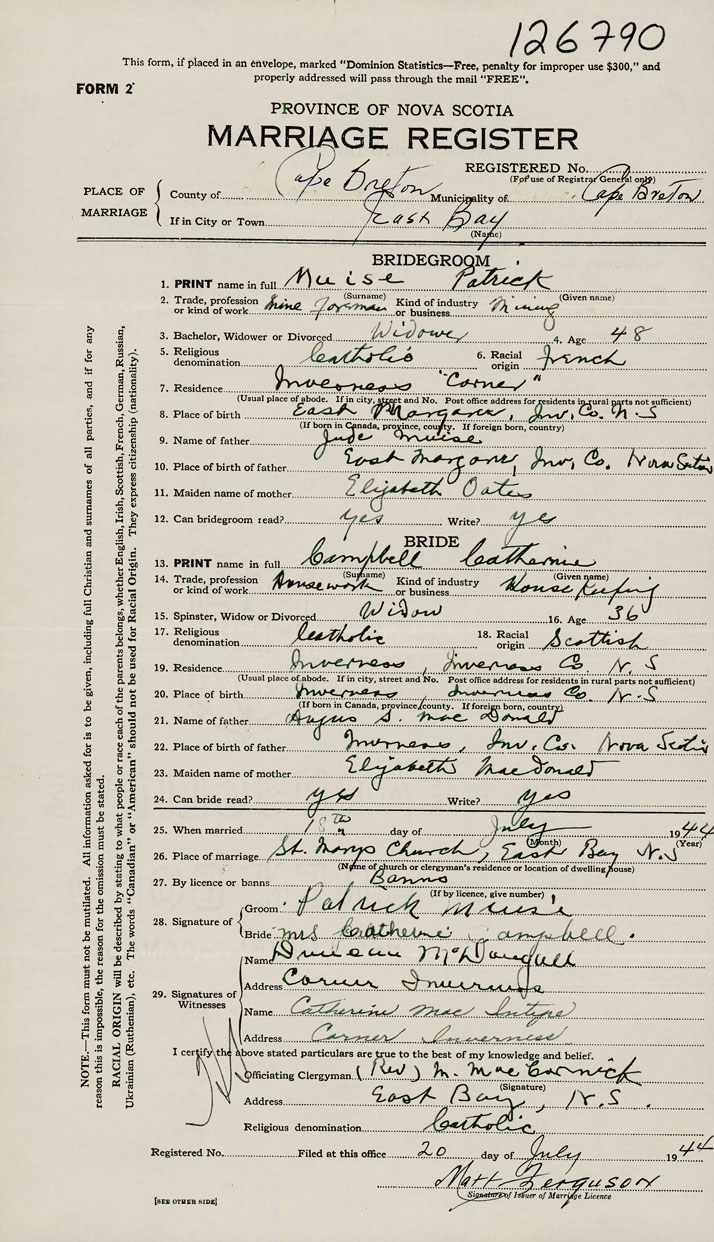 126790
This form, if placed in an envelope, marked "Dominion Statistics—Free, penalty for improper use $300," and
properly addressed will pass through the mail "FREE".
FORM 2
PROVINCE OF NOVA SCOTIA
MARRIAGE REGISTER
REGISTERED No.
(For use of Registrar General only)
PLACE OF MARRIAGE
County of Cape Breton Municipality of Cape Breton
If in City or Town East Bay
(Name)
BRIDEGROOM
1. PRINT name in full Muise Patrick
(Surname) (Given name)
2. Trade, profession or kind of work Mine Foreman Kind of industry or business Mining
3. Bachelor, Widower or Divorced Widower 4. Age 48
5. Religious denomination Catholic 6. Racial origin French
7. Residence Inverness "Corner"
(Usual place of abode. If in city, street and No. Post office address for residents in rural parts not sufficient)
8. Place of birth East Margaree, Inv. Co. N.S
(If born in Canada, province, county. If foreign born, country)
9. Name of father Jude Muise
10. Place of birth of father East Margaree, Inv. Co. Nova Scotia
11. Maiden name of mother Elizabeth Oates
12. Can bridegroom read? yes Write? yes
BRIDE
13. PRINT name in full Campbell Catherine
(Surname) (Given name)
14. Trade, profession or kind of work Housework Kind of industry or business House Keeping
15. Spinster, Widow or Divorced Widow 16. Age 36
17. Religious denomination Catholic 18. Racial origin Scottish
19. Residence Inverness, Inverness Co. N.S
(Usual place of abode. If in city, street and No. Post office address for residents in rural parts not sufficient)
20. Place of birth Inverness, Inverness Co. N.S
(If born in Canada, province, county. If foreign born, country)
21. Name of father Angus S. Mac Donald
22. Place of birth of father Inverness, Inv. Co. Nova Scotia
23. Maiden name of mother Elizabeth MacDonald
24. Can bride read? yes Write? yes
25. When married 18th day of July 1944
(Month) (Year)
26. Place of marriage St. Marys Church, East Bay N.S
(Name of church or clergyman's residence or location of dwelling house)
27. By licence or banns Banns
(If by licence, give number)
28. Signature of
Groom Patrick Muise
Bride Mrs Catherine Campbell.
29. Signatures of Witnesses
Name Duncan McDougall
Address Corner Inverness
Name Catherine Mac Intyre
Address Corner Inverness
I certify the above stated particulars are true to the best of my knowledge and belief.
Officiating Clergyman (Rev) M. MacCormick
(Signature)
Address East Bay, N.S.
Religious denomination Catholic
Registered No. Filed at this office 20 day of July 1944
Matt Ferguson
Signature of Issuer of Marriage Licence
[SEE OTHER SIDE]
NOTE.—This form must not be mutilated. All information asked for is to be given, including full Christian and surnames of all parties, and if for any
reason this is impossible, the reason for the omission must be stated.
RACIAL ORIGIN will be described by stating to what people or race each of the parents belongs, whether English, Irish, Scottish, French, German, Russian,
Ukrainian (Ruthenian), etc. The words "Canadian" or "American" should not be used for Racial Origin. They express citizenship (nationality).